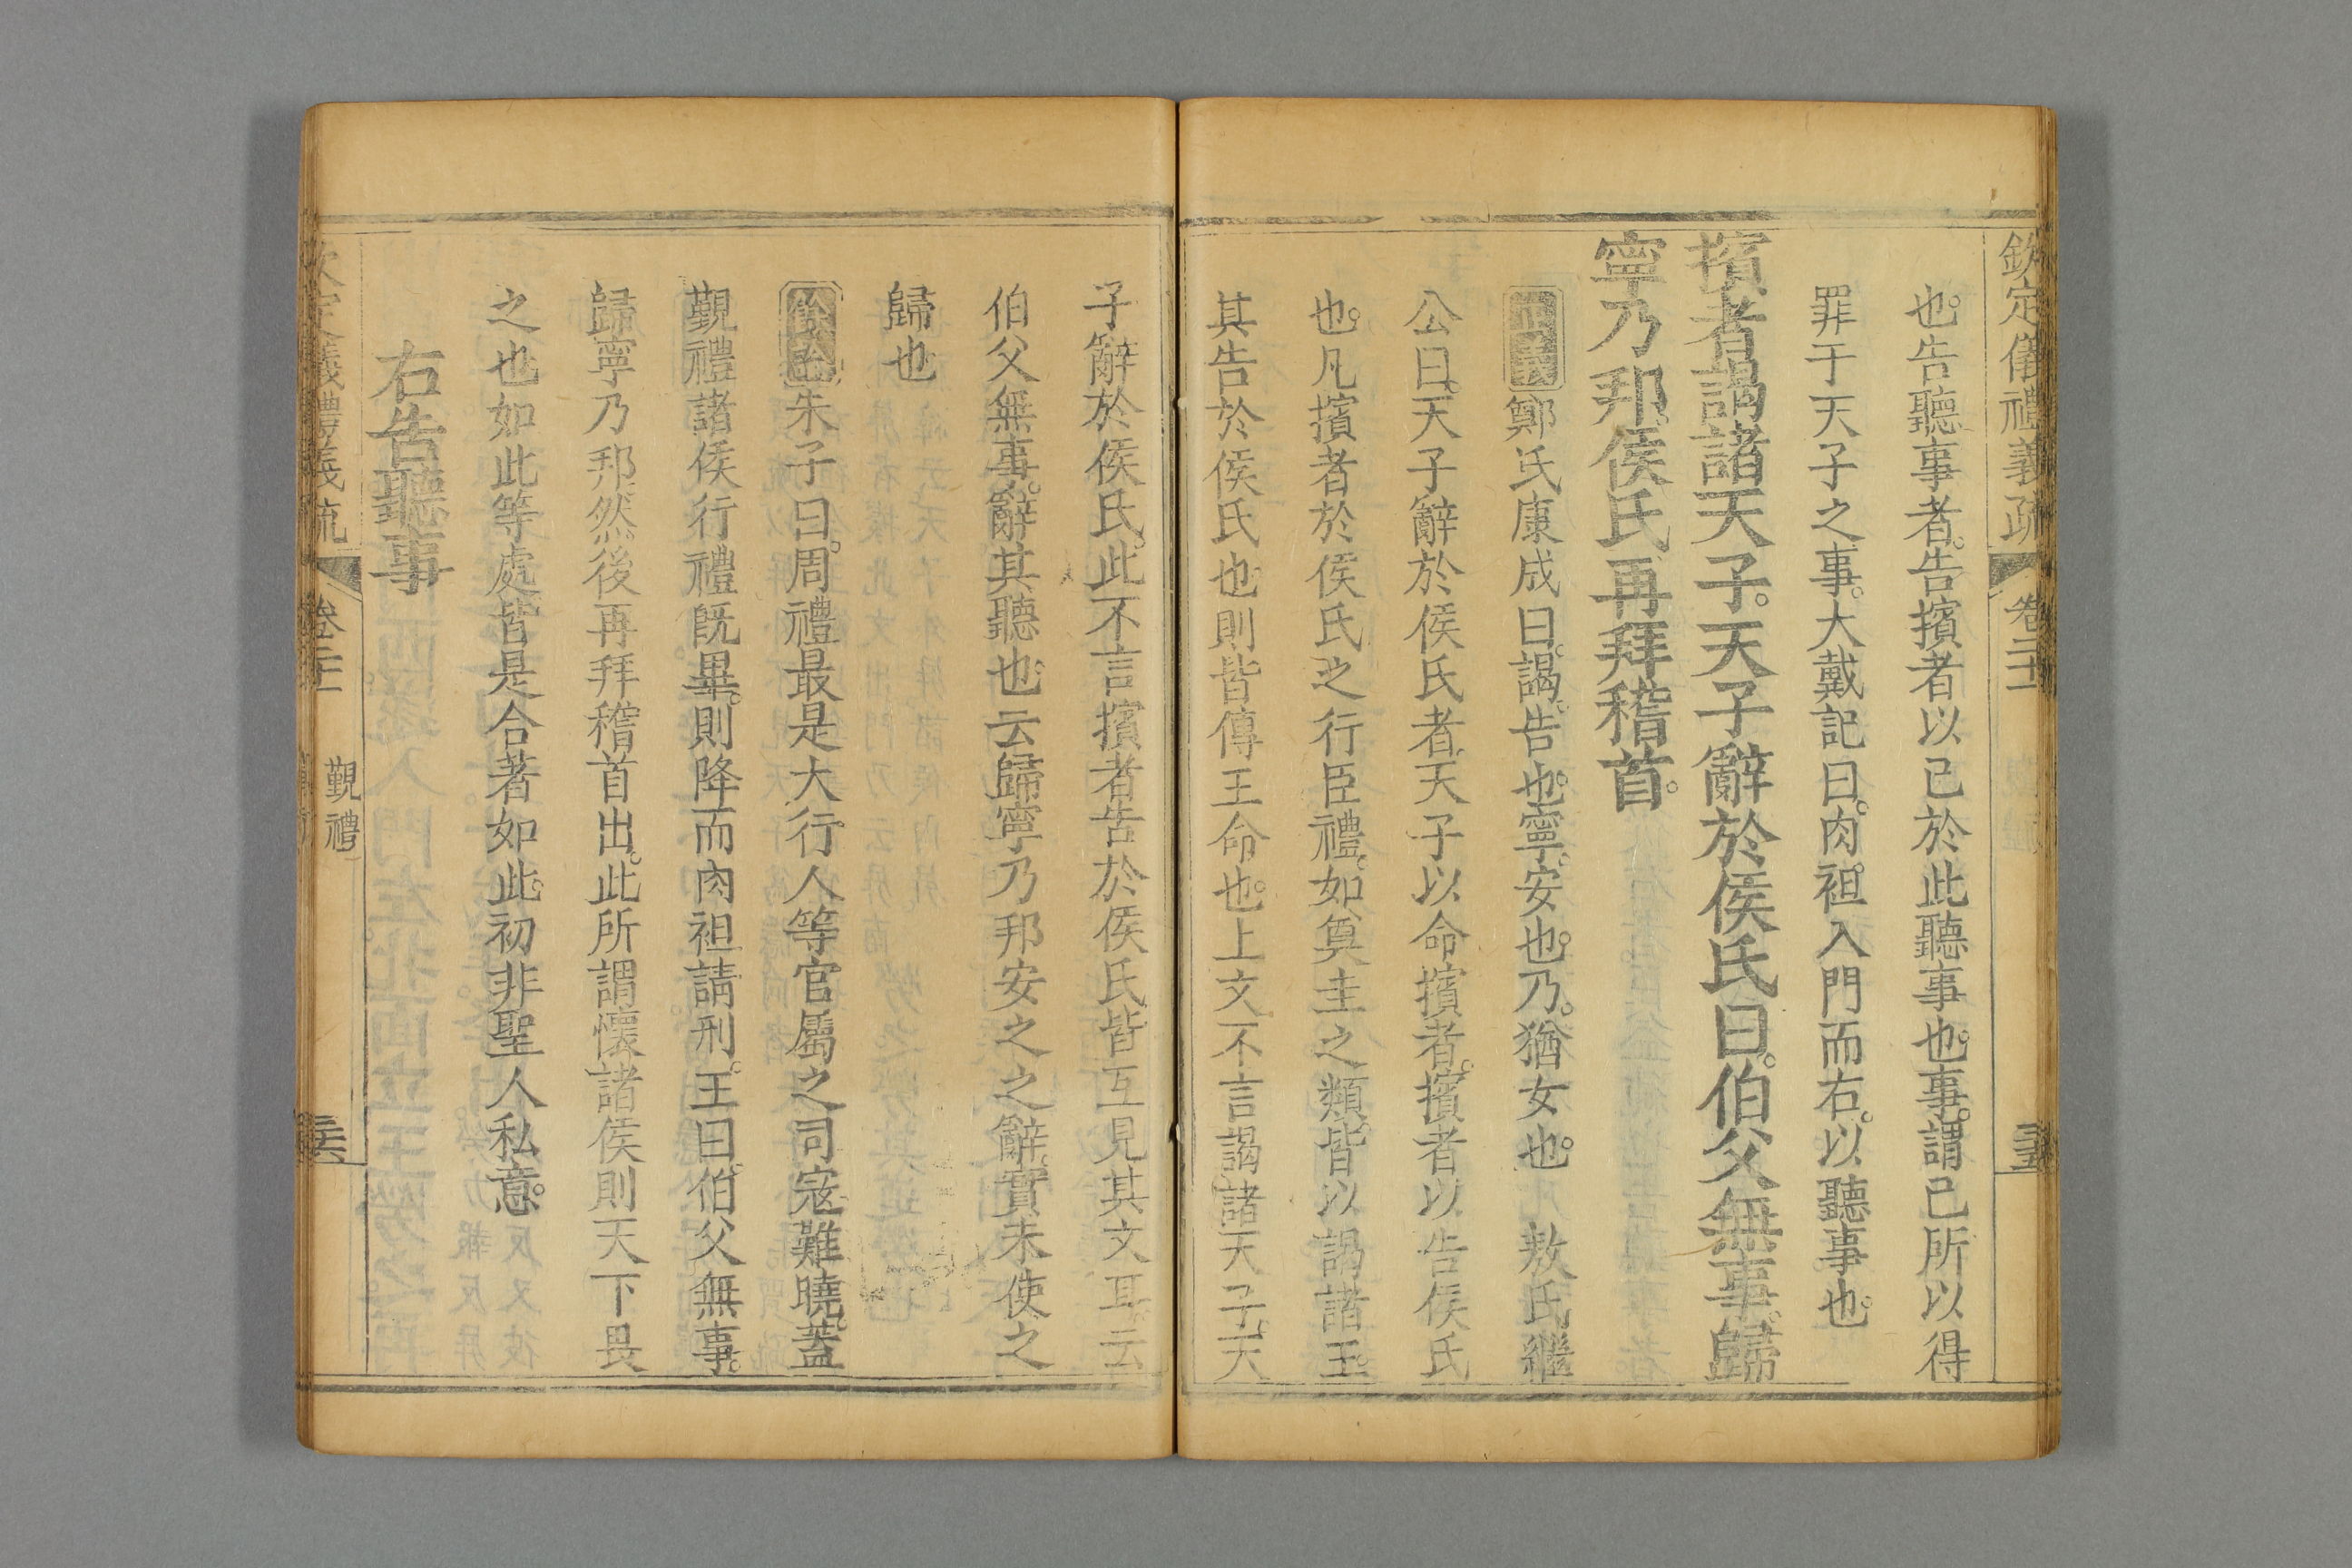 欽定儀禮義疏 卷二十一
也。告聽事者。告擯者以已於此聽事也。事。謂已所以得
罪于天子之事。大戴記曰。肉袒入門而右。以聽事也。
擯者謁諸天子。天子辭於侯氏曰。伯父無事。歸
寧乃邦。侯氏再拜稽首。
正義鄭氏康成曰。謁。告也。寧。安也。乃。猶女也。 敖氏繼
公曰。天子辭於侯氏者。天子以命擯者。擯者以告侯氏
也。凡擯者於侯氏之行臣禮。如奠圭之類。皆以謁諸王。
其告於侯氏也。則皆傳王命也。上文不言謁諸天子。天
子辭於侯氏。此不言擯者告於侯氏。皆互見其文耳。云
伯父無事。辭其聽也。云歸寧乃邦。安之之辭。實未使之
歸也
餘論朱子曰。周禮最是大行人等官屬之司寇難曉。蓋
覲禮諸侯行禮既畢。則降而肉袒請刑。王曰。伯父無事。
歸寧乃邦。然後再拜稽首出。此所謂懷諸侯則天下畏
之也。如此等處。皆是合著如此。初非聖人私意。
右告聽事
義禮義疏 卷二十一 覲禮